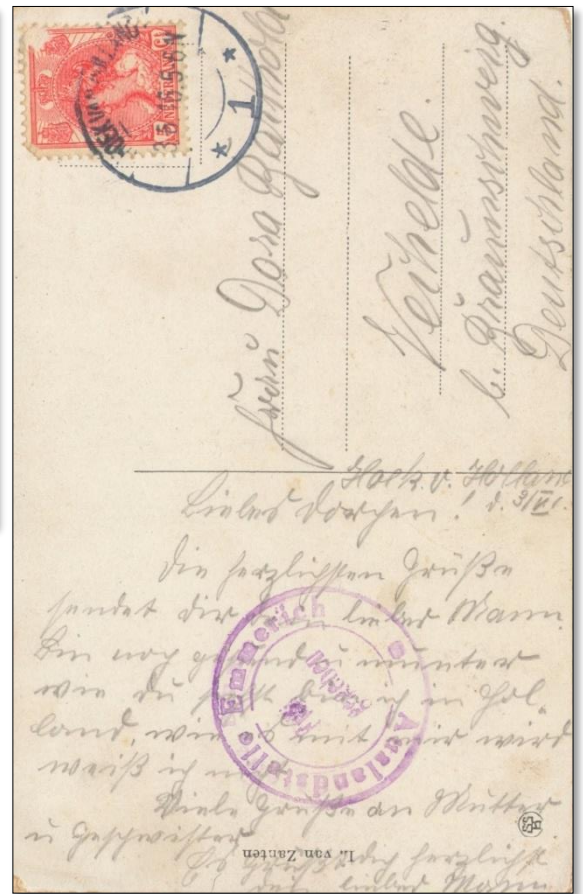 Frau Dora
Vechelde.
b. Braunschweig.
Deutschland.
Hoek v. Holland
Liebes Dorchen! d. 3/VI.
Die herzlichsten Grüße
sendet dir dein lieber Mann
Bin noch gesund u munter
wie du siehst bin ich in Hol-
land, wie es mit mir wird
weiß ich nicht
Viele Grüße an Mutter
u Geschwister
Es grüßt dich herzlichst
dein lieber Mann
L. von Zanten
Auslandstelle Emmerich
NEDERLAND
1